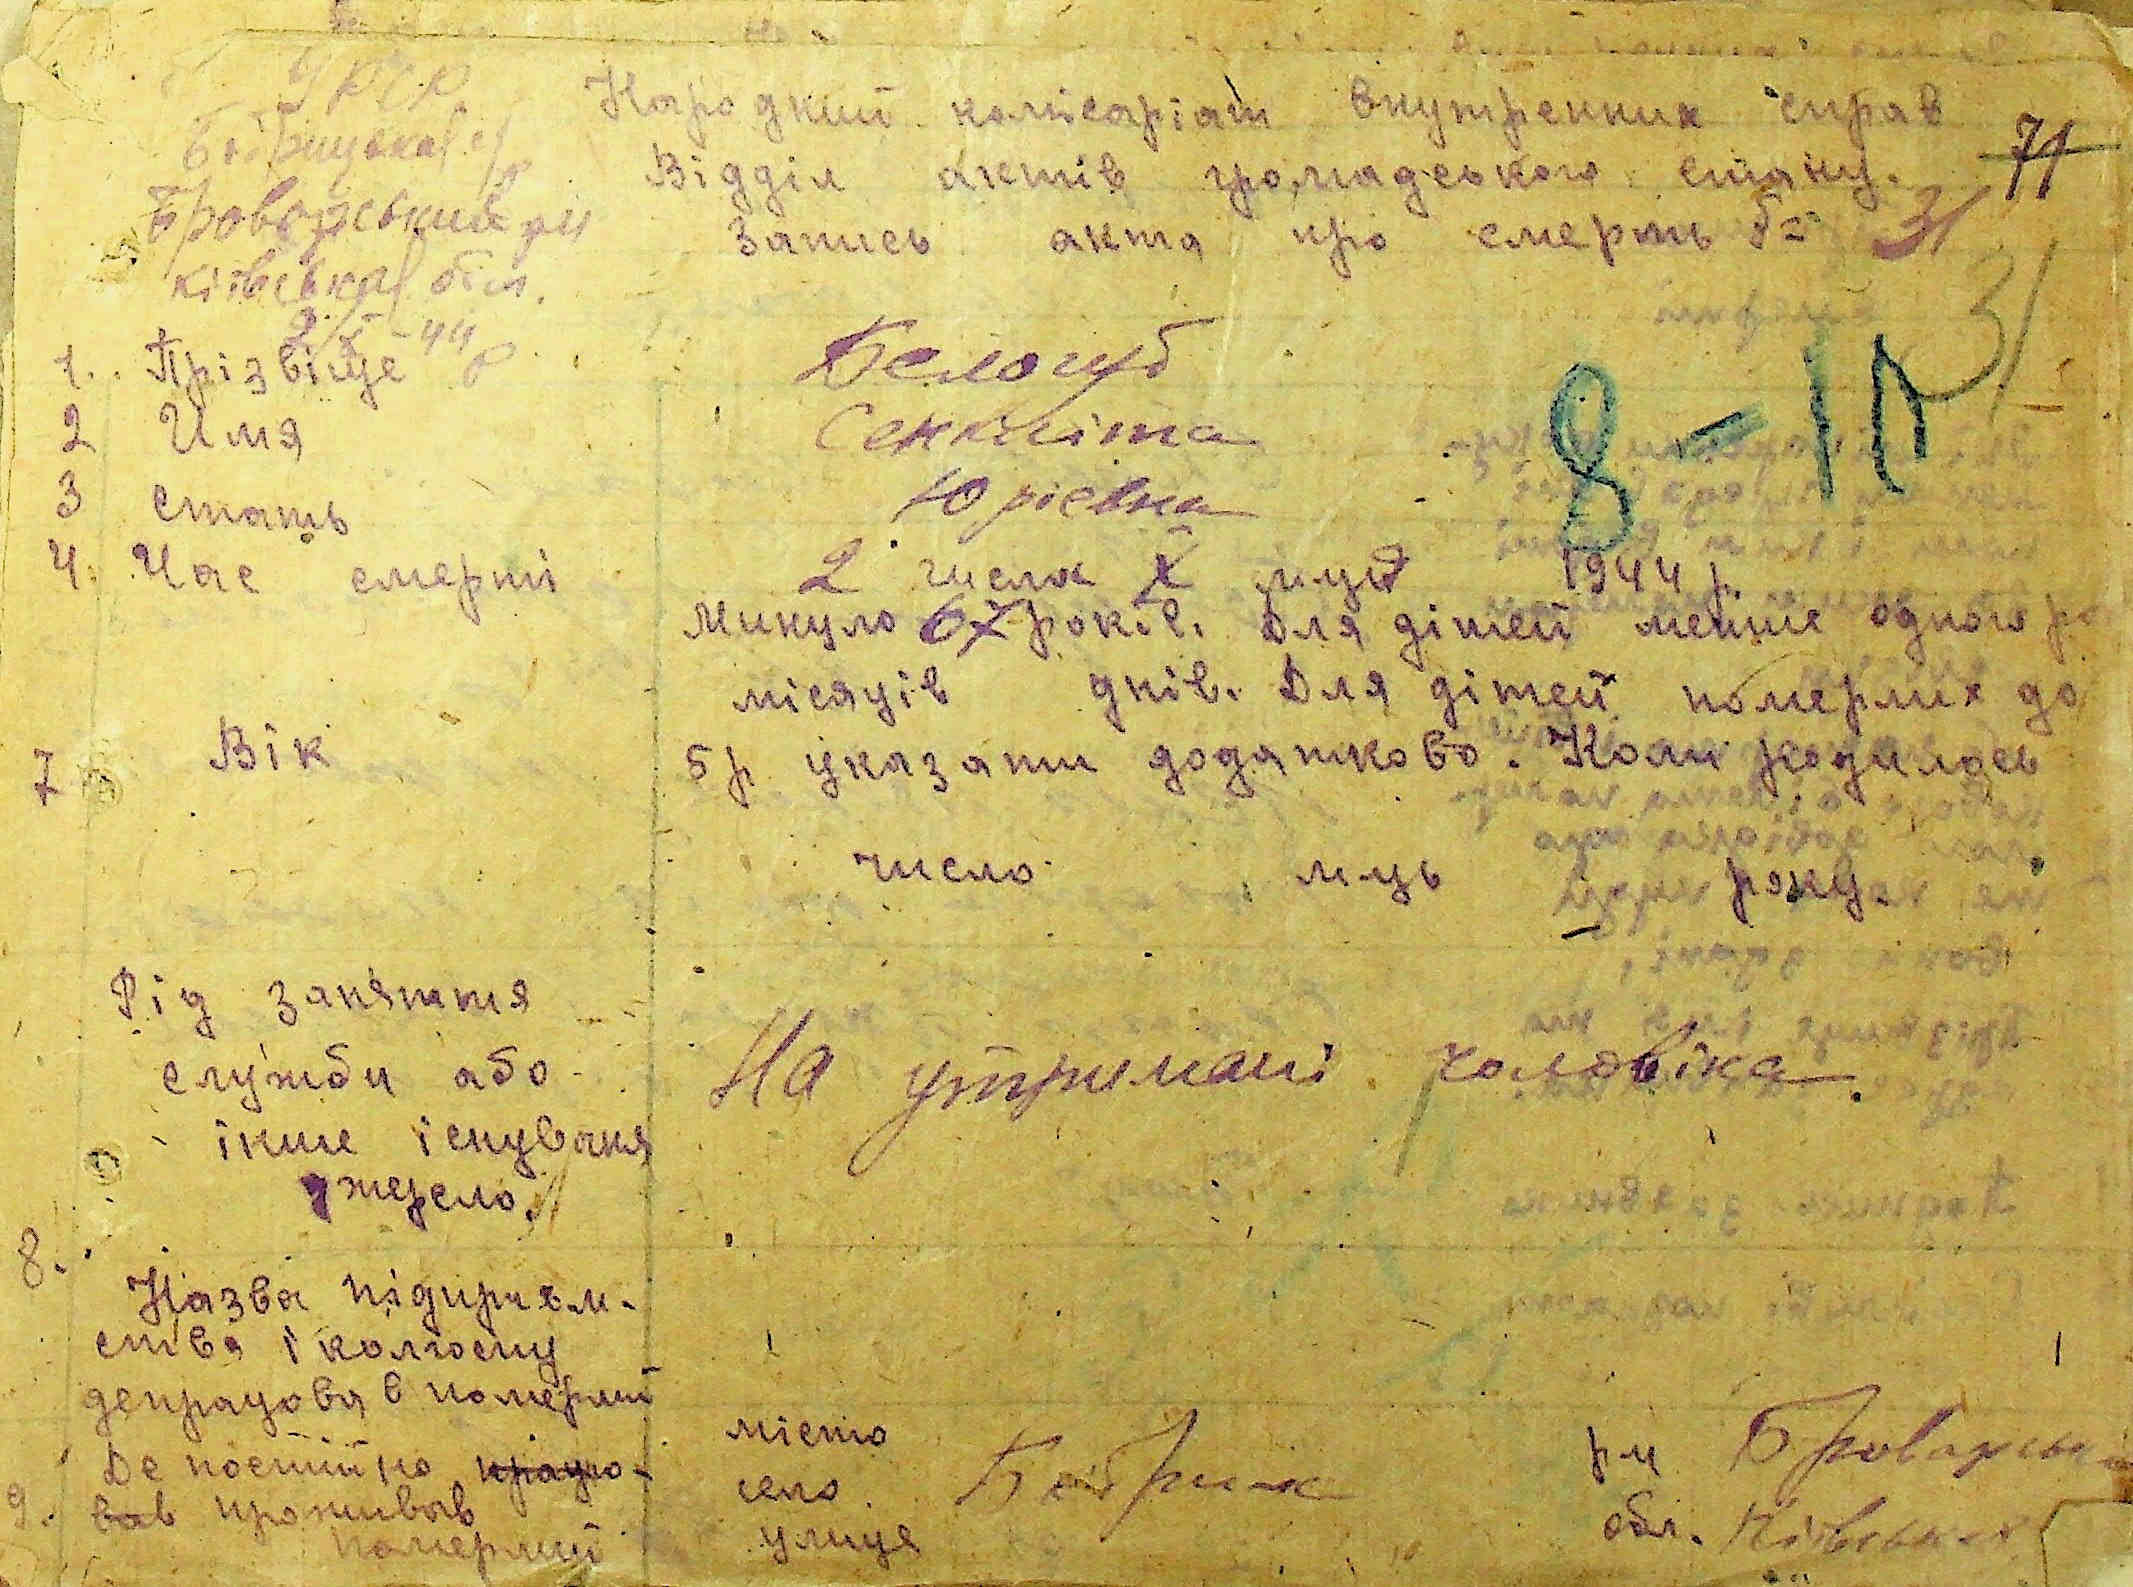 УРСР.
Броварський рн
Київська обл.
2/X-44 р
Народний комісаріат внутренних справ
Відділ актів громадського стану.
Запись акта про смерть № 31
71
31
8-10
1. Прізвіще Белогуб
2 Имя Секлита
3 Стать Юріевна
4. Час смерті 2 числа X м-ця 1944 р.
Минуло 67 років. Для дітей менше одного ро
місяців днів. Для дітей померлих до
7 Вік 5 р указати додатково. Коли родилось
число м-ць року.
Рід заняття
служби або На утримані чоловіка.
інше існуваня
джерело.
8.
Назва підприєм-
ства і колгоспу
депрацовав померлий
9. Де постійно працю-
вав проживав
померлий
місто
село Бобрик
улиця
р-н Броварськ
обл. Київська